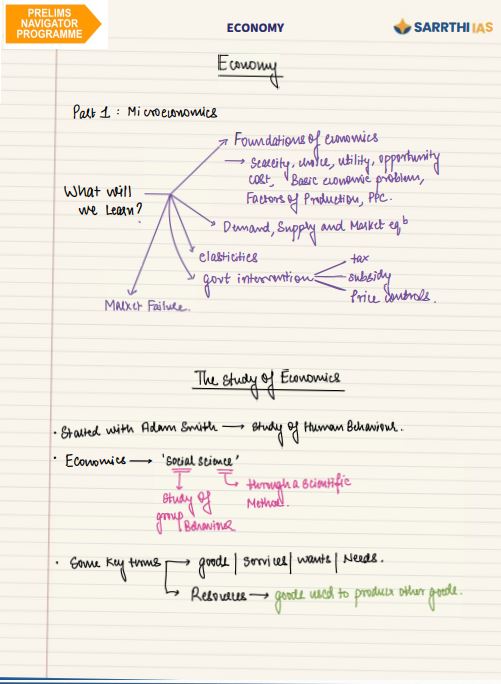 PRELIMS
NAVIGATOR
PROGRAMME
ECONOMY
SARRTHI IAS
Economy
Part 1 : Microeconomics
What will
we learn?
Foundations of economics
→ scarcity, choice, utility, opportunity
cost, Basic economic problem,
Factors of Production, PPC.
Demand, Supply and Market eqᵇ
elasticities
govt intervention
tax
subsidy
Price controls.
Market Failure.
The Study of Economics
· Started with Adam Smith → Study of Human Behaviour.
· Economics → 'Social Science'
→ through a scientific
Method.
Study of
group Behaviour
· Some key terms → goods | services | wants | Needs.
→ Resources → goods used to produce other goods.